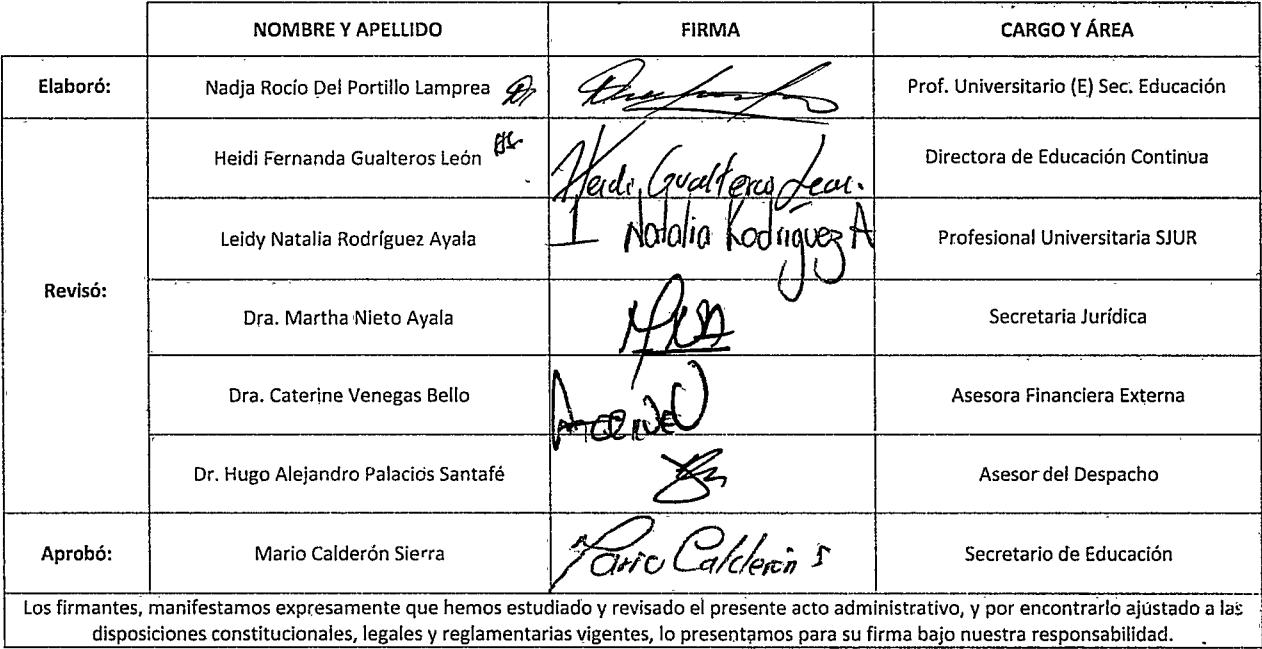 NOMBRE Y APELLIDO FIRMA CARGO Y ÁREA
Elaboró: Nadja Rocío Del Portillo Lamprea Prof. Universitario (E) Sec. Educación
Heidi Fernanda Gualteros León Heidi Gualteros Leon. Directora de Educación Continua
Leidy Natalia Rodríguez Ayala Natalia Rodríguez A Profesional Universitaria SJUR
Revisó:
Dra. Martha Nieto Ayala Secretaria Jurídica
Dra. Caterine Venegas Bello Asesora Financiera Externa
Dr. Hugo Alejandro Palacios Santafé Asesor del Despacho
Aprobó: Mario Calderón Sierra Mario Calderón S Secretario de Educación
Los firmantes, manifestamos expresamente que hemos estudiado y revisado el presente acto administrativo, y por encontrarlo ajustado a las
disposiciones constitucionales, legales y reglamentarias vigentes, lo presentamos para su firma bajo nuestra responsabilidad.